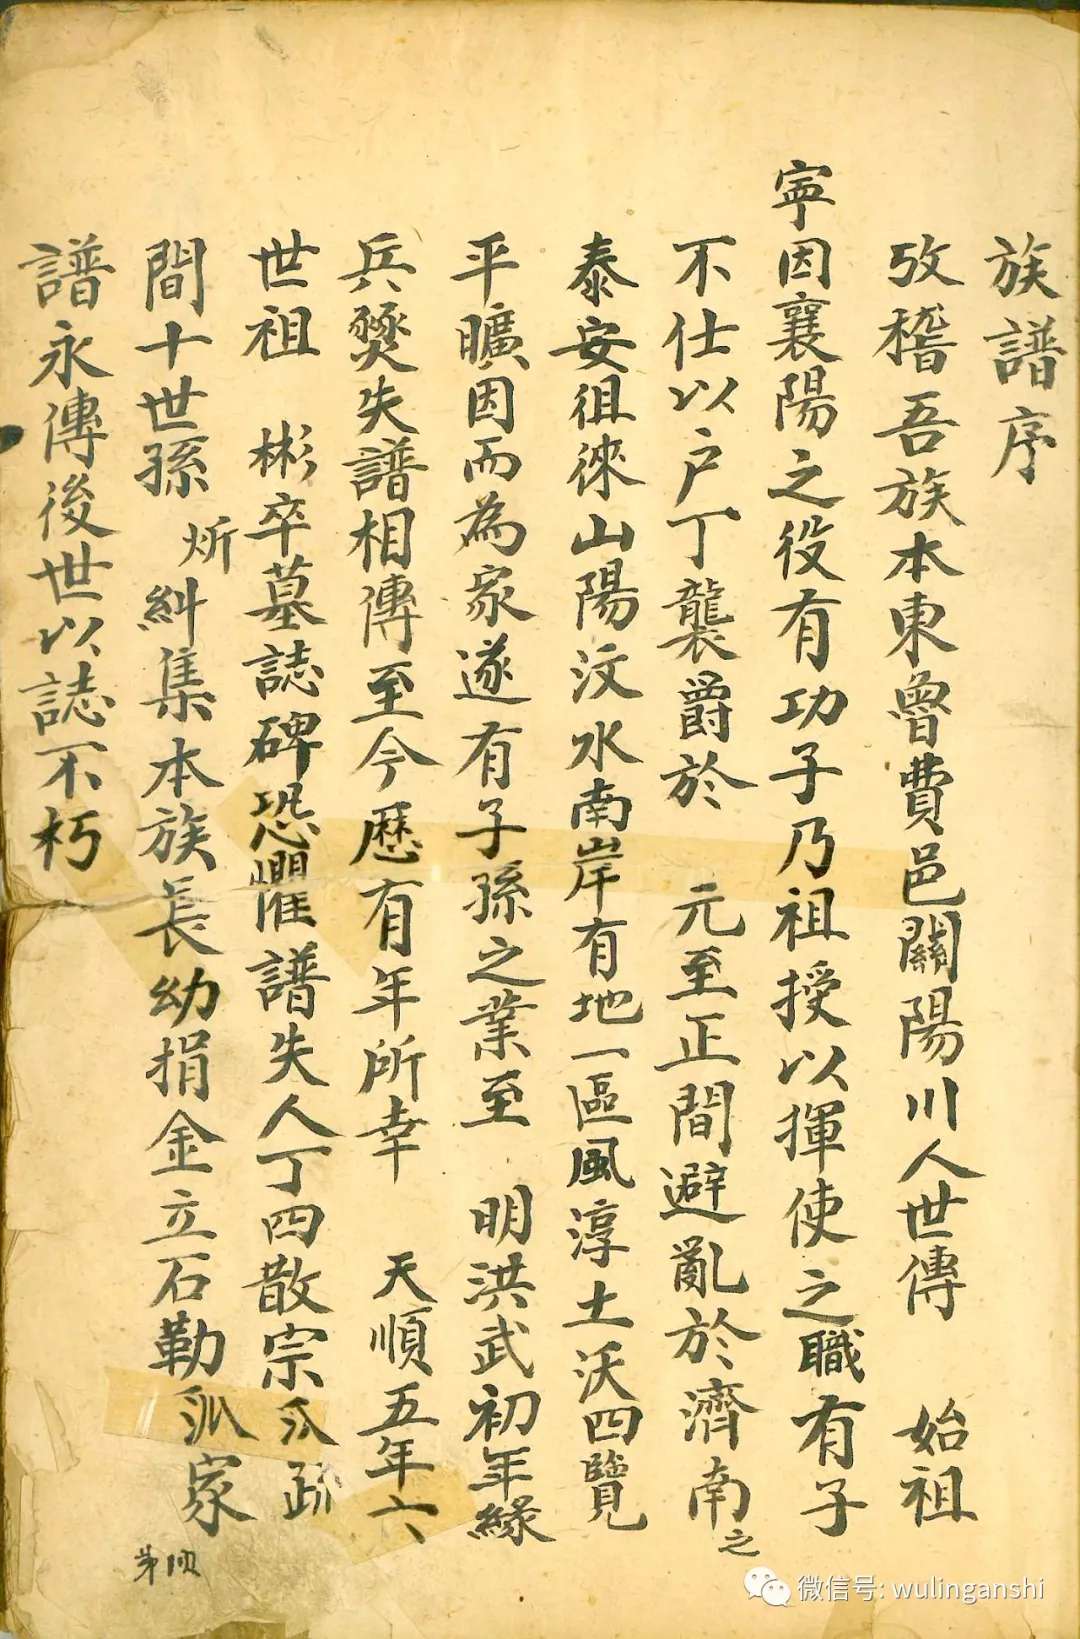 族譜序
攷稽吾族本東魯費邑關陽川人世傳 始祖
寧因襄陽之役有功子乃祖授以揮使之職有子
不仕以户丁襲爵於 元至正間避亂於濟南之
泰安徂徠山陽汶水南岸有地一區風淳土沃四覽
平曠因而為家遂有子孫之業至 明洪武初年緣
兵燹失譜相傳至今歷有年所幸 天順五年六
世祖 彬卒墓誌碑恐懼譜失人丁四散宗派疏
間十世孫 炘糾集本族長幼捐金立石勒派家
譜永傳後世以誌不朽
微信号: wulinganshi